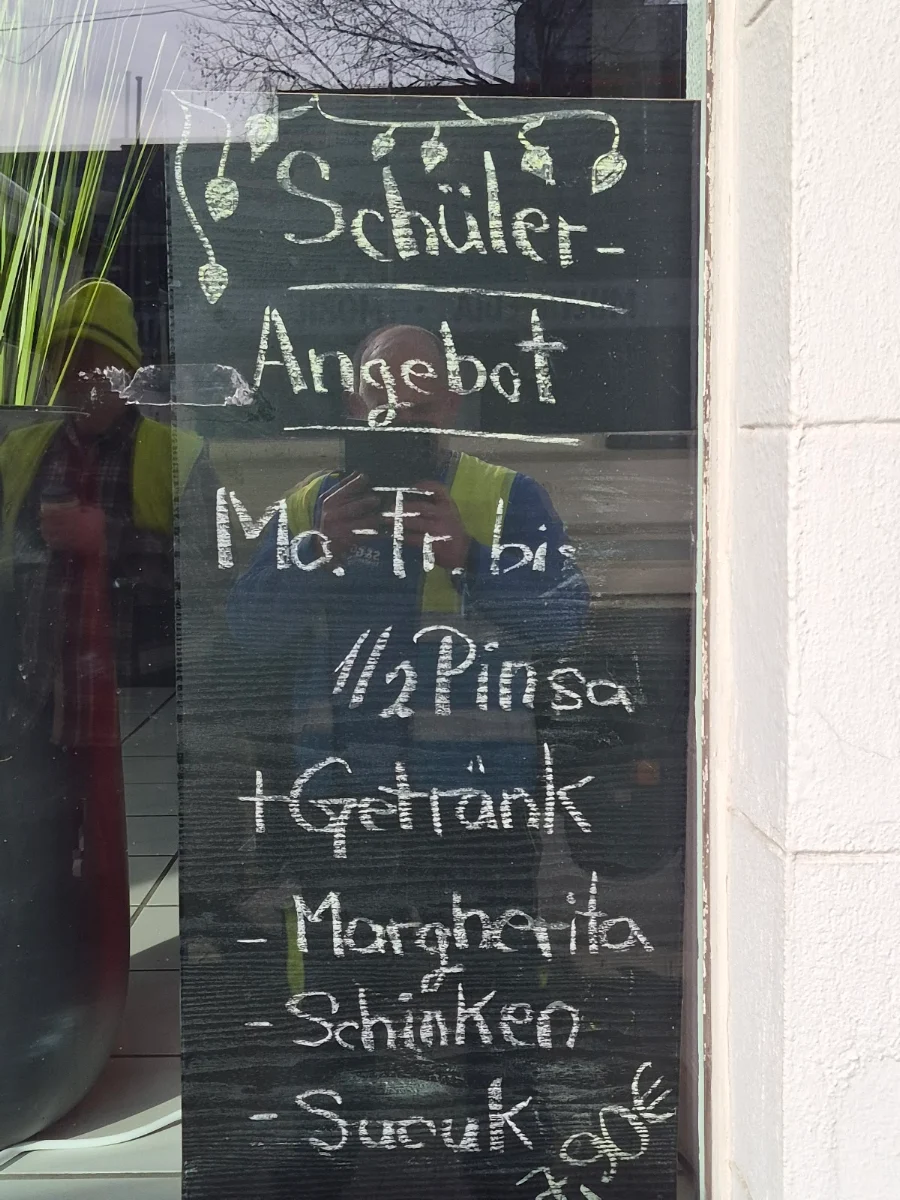 Schüler-
Angebot
Mo.-Fr. bis
1/2 Pinsa
+Getränk
- Margherita
- Schinken
- Sucuk